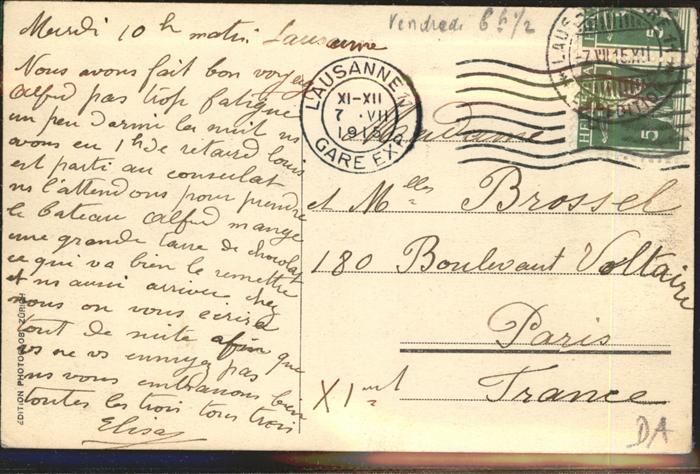 Mardi 10 h matin Lausanne
Nous avons fait bon voyage
Alfred pas trop fatigué
un peu dormi la nuit ns
avons eu 1h de retard Louis
est parti au consulat
ns l'attendons pour prendre
le bateau Alfred mange
une grande tasse de chocolat
ce qui va bien le remettre
et ns aussi arriver chez
nous on vous écrira
tout de suite afin que
vs ne vs ennuyez pas
ns vous embrassons bien
toutes les trois tous trois
Elisa
Vendredi 6h 1/2
LAUSANNE 1
XI-XII
7 VII
1915
GARE EXP.
LAUSANNE
7.VII.15.XII
HELVETIA
5
5
Madame
et Melles Brossel
180 Boulevard Voltaire
Paris
XI ent France
DA
EDITION PHOTOGLOB ZÜRICH